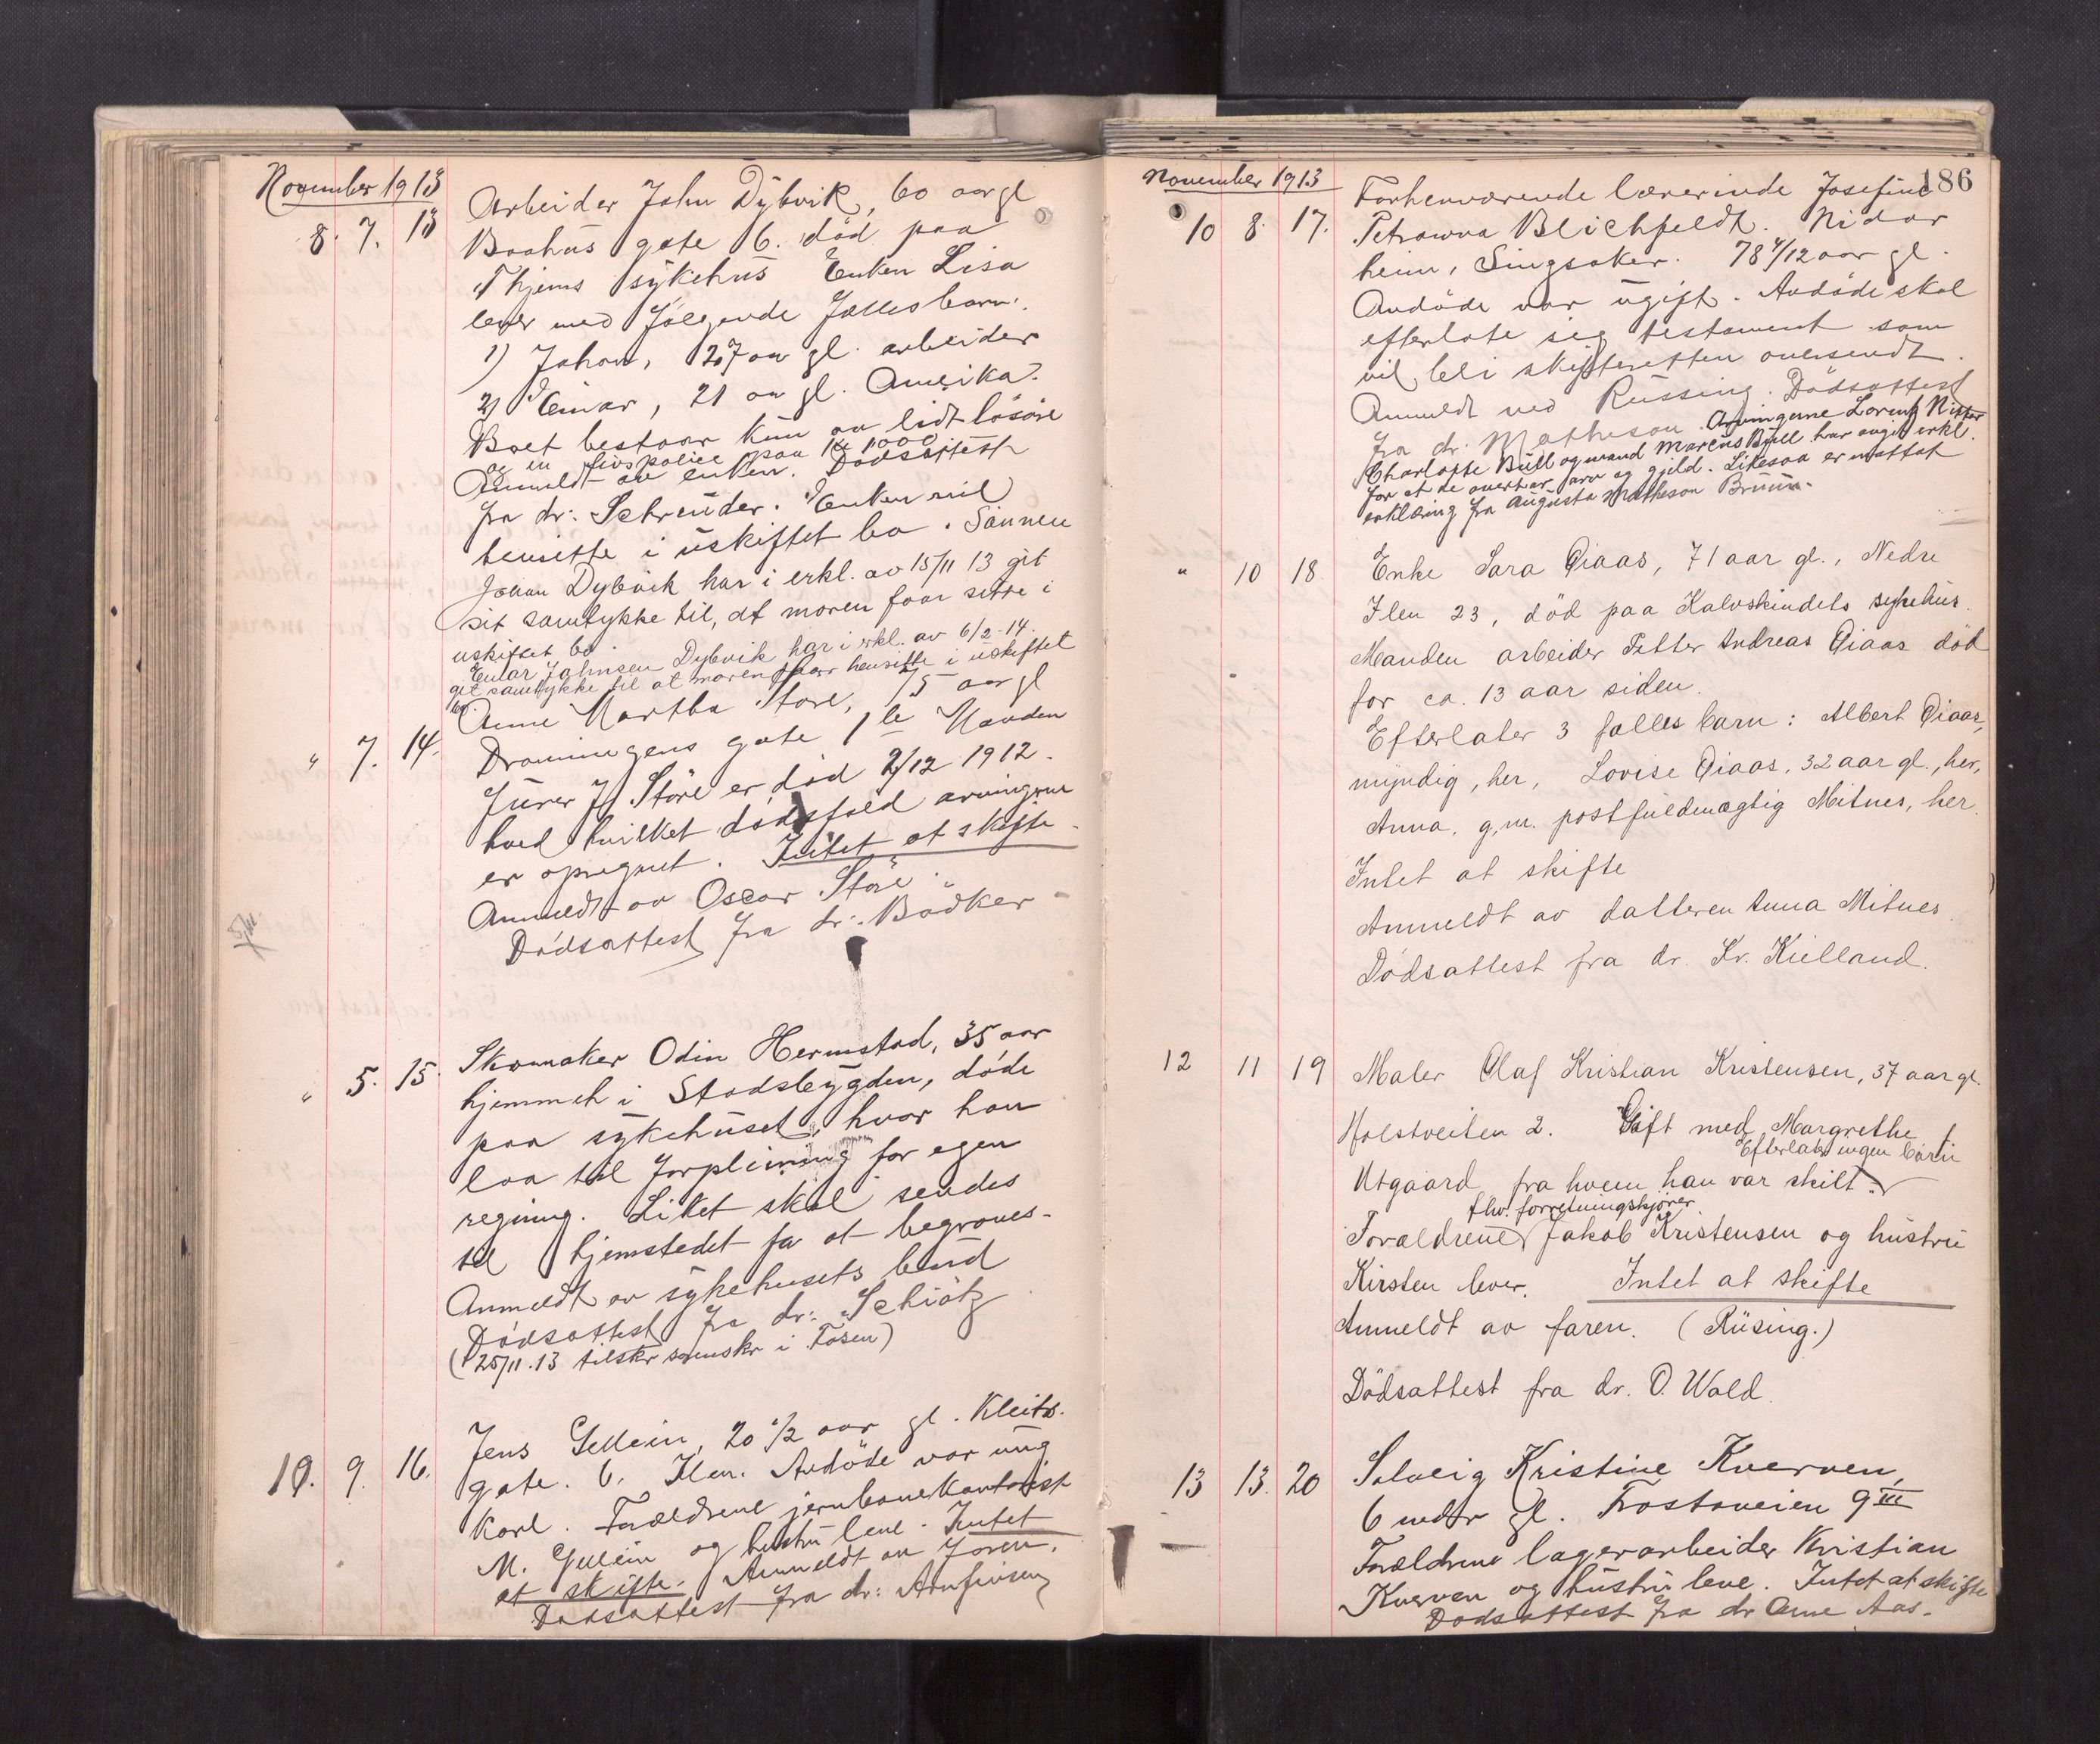 November 1913
8. 7. 13 Arbeider John Dybvik, 60 aar gl
Baahus gate 6. död paa
Thjems sykehus Enken Lisa
lever med følgende fællesbarn:
1) Johan, 27 aar gl. arbeider
2) Einar, 21 aar gl. Amerika.
Boet bestaar kun av lidt lösöre
og en livspolice paa kr 1000
Anmeldt av enken. Dödsattest
fra dr: Schreüder. Enken vil
hensitte i uskiftet bo. Sönnen
Johan Dybvik har i erkl. av 15/11 13 git
sit samtykke til, at moren faar sitte i
uskiftet bo.
Einar Johnsen Dybvik har i erkl. av 6/2-14.
git samtykke til at moren faar hensitte i uskiftet
bo.
" 7. 14. Anne Martha Störe, 75 aar gl
Dronningens gate 1 b Manden
furer J. Störe er död 2/12 1912.
hved hvilket dödsfald arvingerne
er opregnet. Intet at skifte.
Anmeldt av Oscar Störe.
Dödsattest fra dr: Bödker
" 5. 15. Skomaker Odin Hermstad, 35 aar
hjemmeh i Stadsbygden, döde
paa sykehuset, hvor han
laa til forpleining for egen
regning. Liket skal sendes
til hjemstedet for at begraves.
Anmeldt av sykehusets bud
Dödsattest fra dr: Schiötz
(25/11.13 tilskr sorenskr i Fosen)
10. 9. 16. Jens Gellein, 20 1/2 aar gl. Kleins
gate. 6. Ilen. Avdöde var ung
karl. Forældrene jernbanekontorist
M. Gellein og hustru leve. Intet
at skifte. Anmeldt av faren.
Dödsattest fra dr: Arnfinsen
November 1913
186
10 8. 17. Forhenværende lærerinde Josefine
Petrowa Blichfeldt. Nidar
heim, Singsaker. 78 4/12 aar gl.
Avdöde var ugift. Avdöde skal
efterlate sig testament som
vil bli skifteretten oversendt.
Anmeldt ved Rüssing. Dödsattest
fra dr. Matheson. Arvingerne Lorentz
Charlotte Büll og mand Marcus Büll har avgit erkl.
for at de overtar arv og gjeld. Likesaa er mottat
erklæring fra Augusta Matheson Brünn.
" 10 18 Enke Sara Qiaas, 71 aar gl., Nedre
Ilen 23, död paa Kalvskindets sykehus.
Manden arbeider Petter Andreas Qiaas död
for ca. 13 aar siden.
Efterlater 3 fælles barn: Albert Qiaas,
myndig, her, Lovise Qiaas, 32 aar gl., her,
Anna, g.m. postfuldmægtig Mitnes, her.
Intet at skifte
Anmeldt av datteren Anna Mitnes.
Dödsattest fra dr. Kr. Kielland.
12 11 19 Maler Olaf Kristian Kristensen, 37 aar gl.
Holstveiten 2. Gift med Margrethe
Efterlater ingen barn
Utgaard fra hvem han var skilt.
fhv. forretningskjörer
Forældrene Jakob Kristensen og hustru
Kirsten lever. Intet at skifte
Anmeldt av faren. (Rüsing.)
Dödsattest fra dr. O. Wald.
13 13. 20 Solveig Kristine Kverven,
6 mdr gl. Frostaveien 9 III
Forældrene lagerarbeider Kristian
Kverven og hustru leve. Intet at skifte
Dödsattest fra dr Arne Aas.